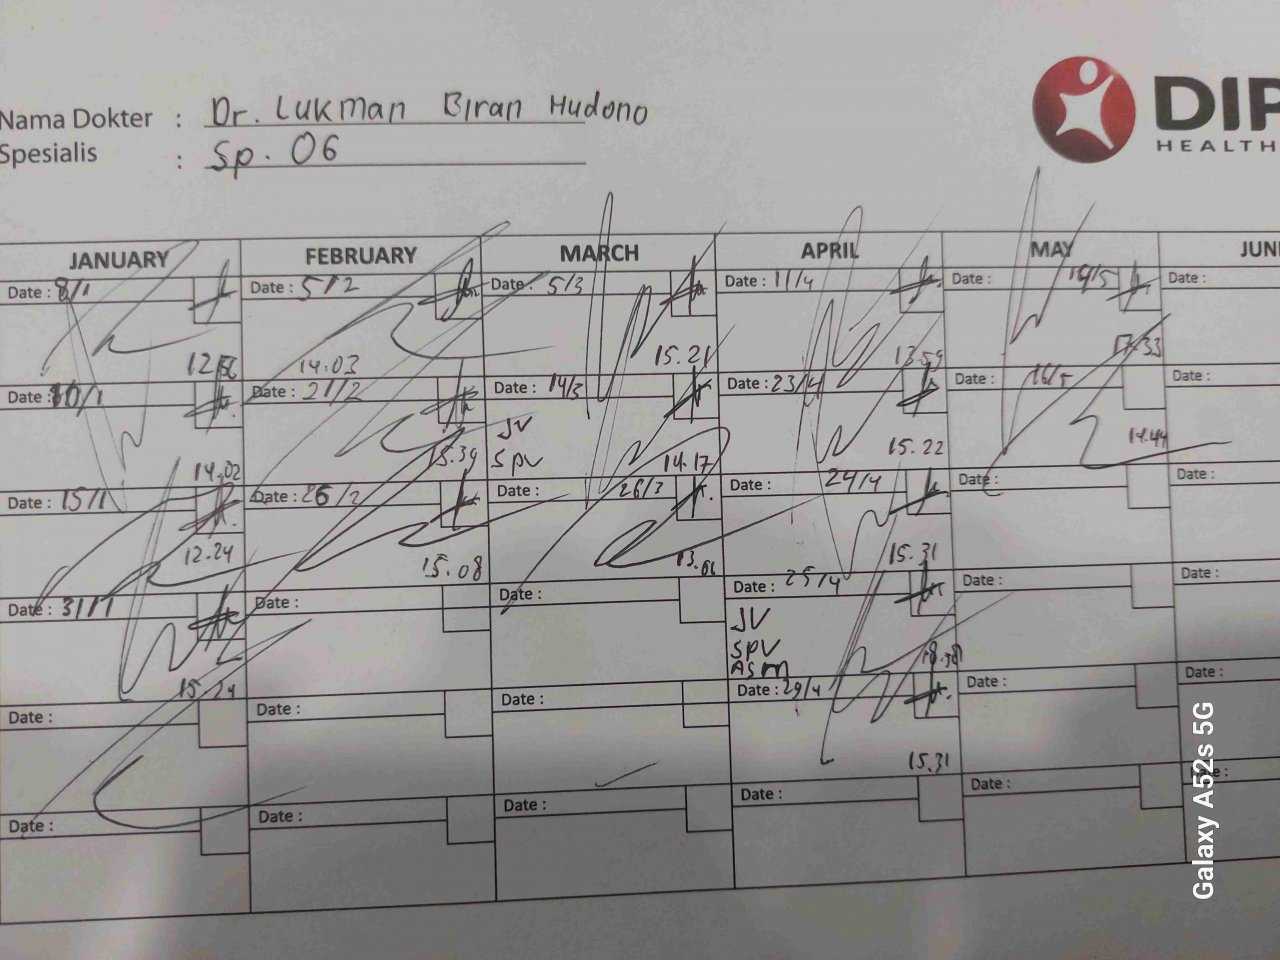 Nama Dokter : Dr. Lukman Biran Hudono
Spesialis : Sp. OG
DIP
HEALTH
JANUARY FEBRUARY MARCH APRIL MAY JUN
Date : 8/1 Date : 5/2 Date : 5/3 Date : 11/4 Date : Date :
14.03 15.21 13.59 17.33
Date : 10/1 Date : 21/2 Date : 14/3 Date : 23/4 Date : 16/5 Date :
JV
14.02 15.39 SPV 14.17 15.22 14.44
Date : 15/1 Date : 26/2 Date : 26/3 Date : 24/4 Date : Date :
12.24 15.08 15.31
Date : 31/1 Date : Date : Date : 25/4 Date : Date :
JV
SPV
15.24 ASM
Date : Date : Date : Date : 29/4 Date : Date :
15.31
Date : Date : Date : Date : Date :
Galaxy A52s 5G